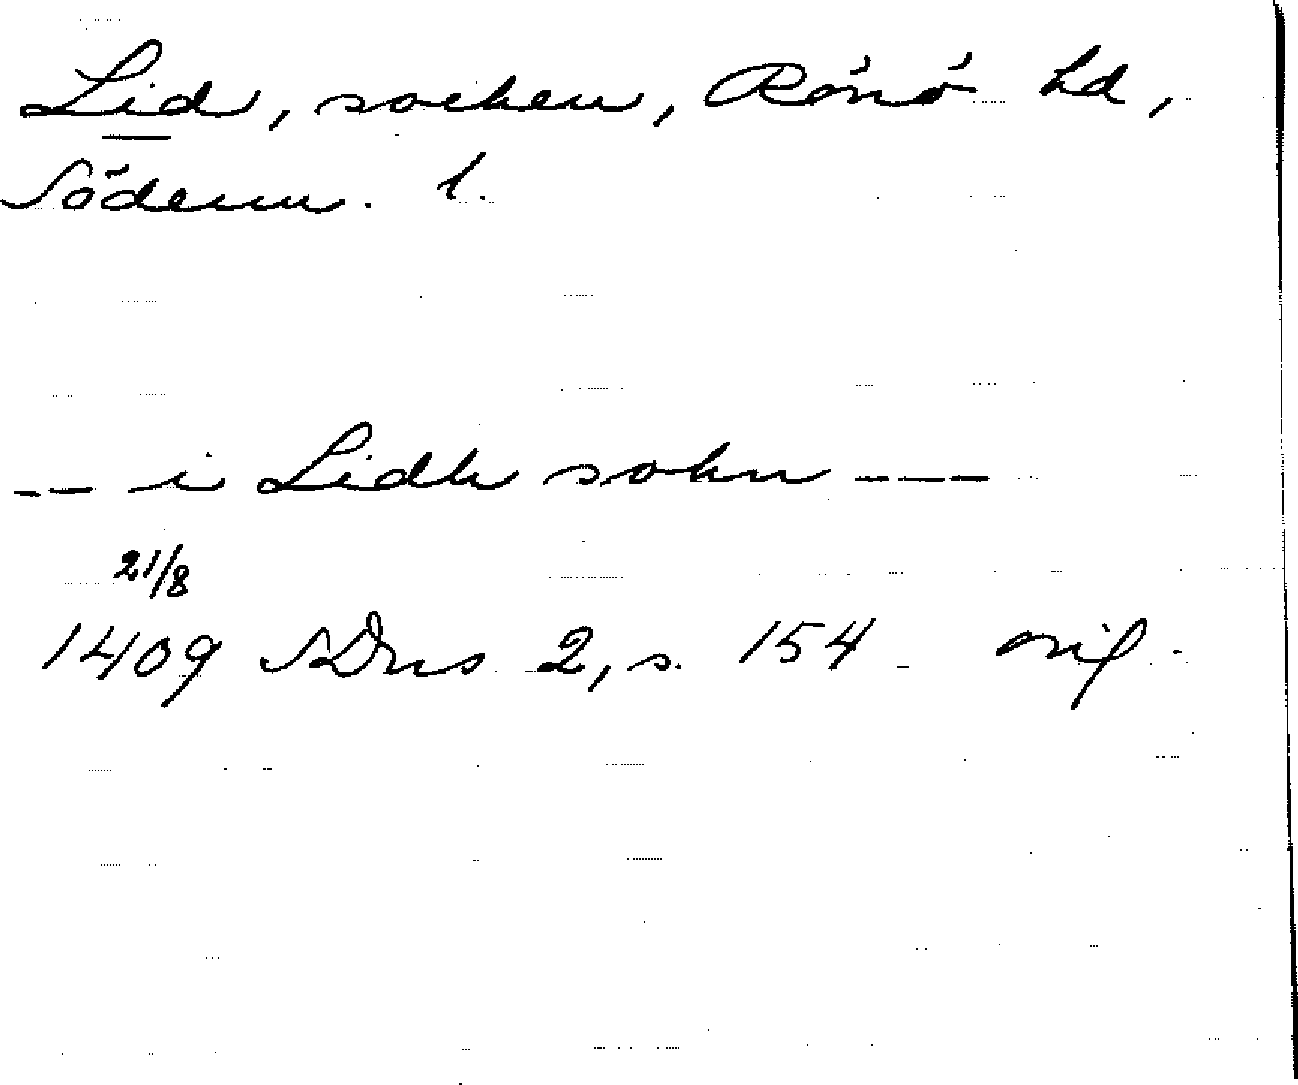 Lid, socken, Rönö hd,
Söderm. l.
--- i Lidh sokn ---
21/8
1409 SDns 2, s. 154 orig.